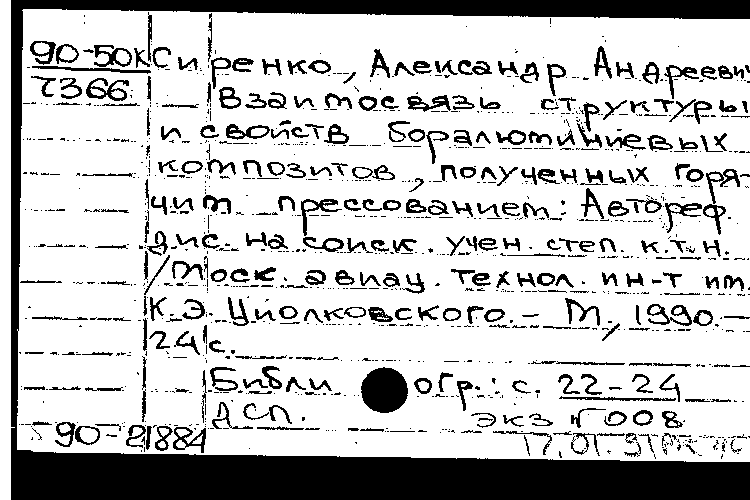 90-50К Сиренко, Александр Андреевич
7366 — Взаимосвязь структуры
и свойств боралюминиевых
композитов, полученных горя-
чим прессованием: Автореф.
дис. на соиск. учен. степ. к.т.н.
/Моск. авиац. технол. ин-т им.
К.Э. Циолковского. – М., 1990. –
24 с.
Библиогр.: с. 22-24
ДСП. экз N 008
90-21884
17.01.91